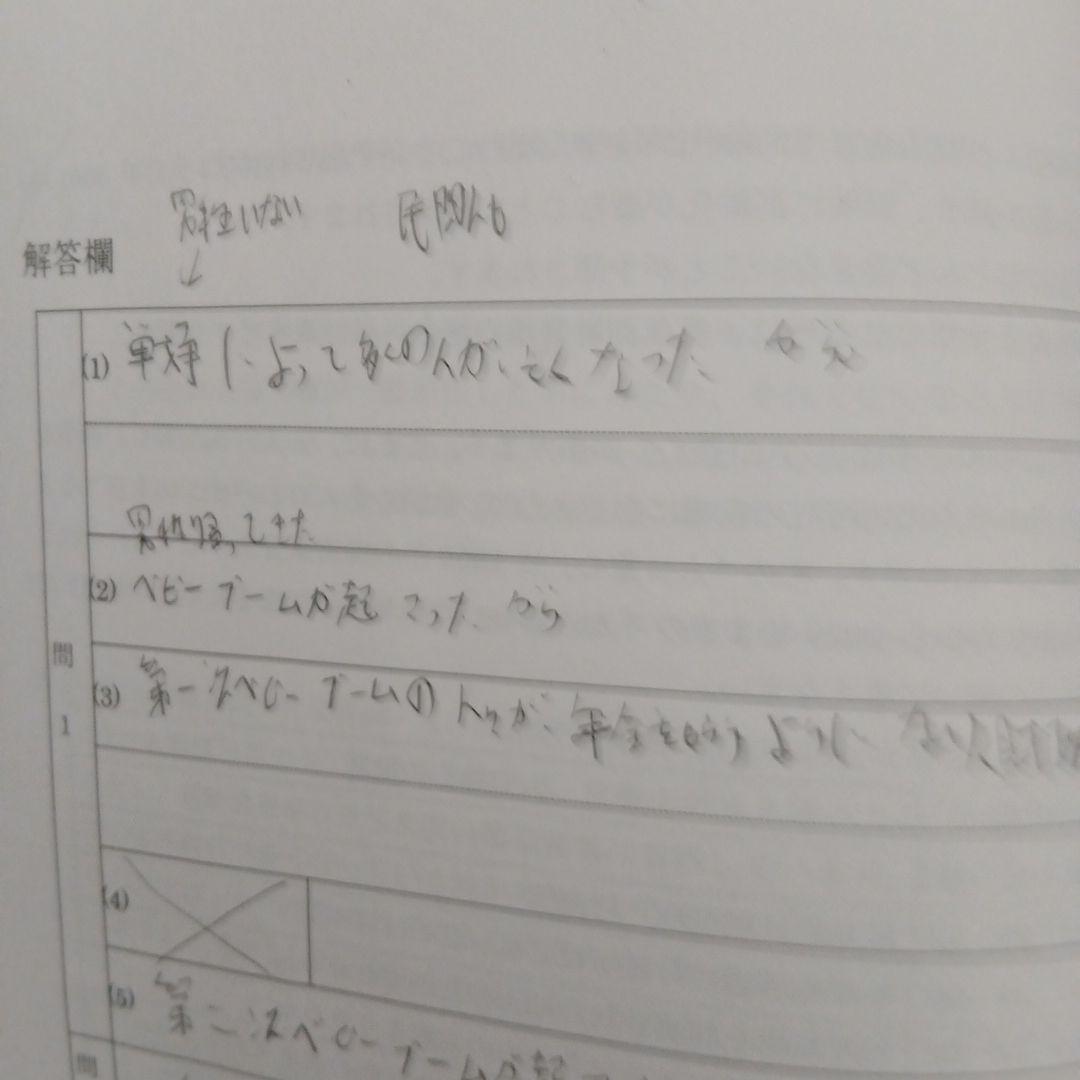 男性いない　民間人も
解答欄
↓
(1) 戦争によって多くの人が亡くなった から
男性が帰ってきた
(2) ベビーブームが起こった から
問1
(3) 第一次ベビーブームの人々が、年金を
(4)
(5) 第二次ベビーブームが起
問